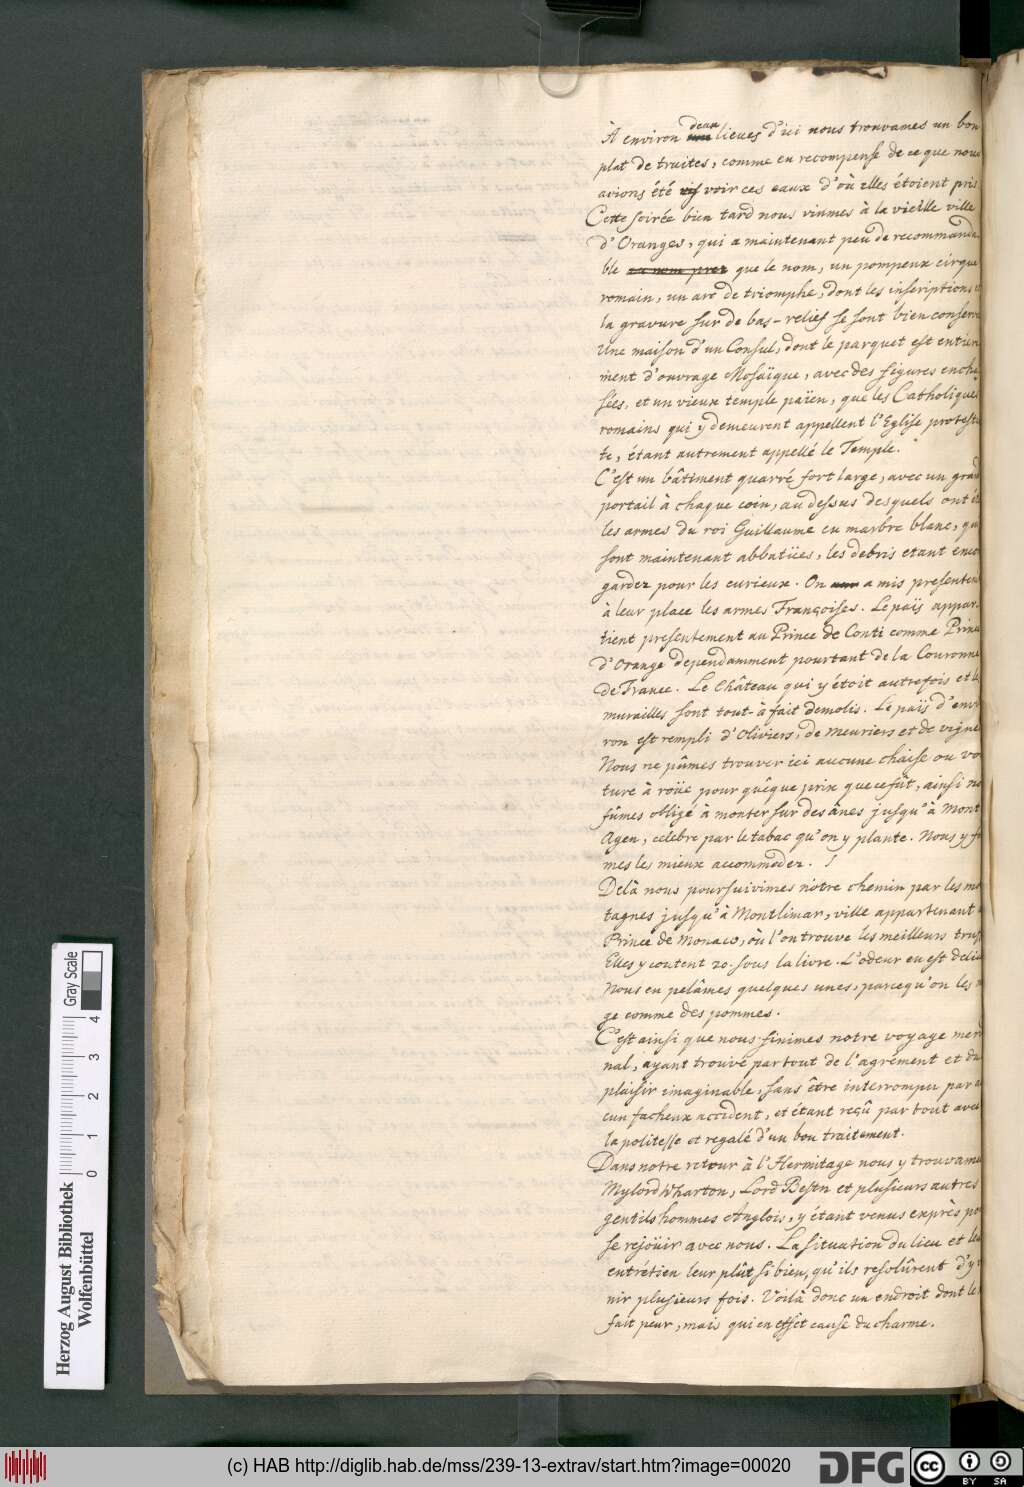 À environ deux lieues d'ici nous trouvames un bon
plat de truites, comme en recompense de ce que nous
avions été voir ces eaux d'où elles étoient pris
Cette soirée bien tard nous vinmes à la vieille ville
d'Oranges, qui a maintenant peu de recommanda
ble que le nom, un pompeux cirque
romain, un arc de triomphe, dont les inscriptions et
la gravure sur de bas-relief se sont bien conserv
Une maison d'un Consul, dont le parquet est entier
ment d'ouvrage Mosaïque, avec des figures encha
sées, et un vieux temple païen, que les Catholiques
romains qui y demeurent appellent l'Eglise protesta
te, étant autrement appellé le Temple.
C'est un bâtiment quarré fort large, avec un grand
portail à chaque coin, au dessus desquels ont ét
les armes du roi Guillaume en marbre blanc, qui
sont maintenant abbatües, les debris etant enco
gardez pour les curieux. On a mis presentem
à leur place les armes Françoises. Le païs appar-
tient presentement au Prince de Conti comme Prince
d'Orange dependamment pourtant de la Couronne
de France. Le Château qui y étoit autrefois et le
murailles sont tout-à fait demolis. Le païs d'envi
ron est rempli d'Oliviers, de meuriers et de vigne
Nous ne pûmes trouver ici aucune chaise ou vo
ture à roüe pour quêque prix que ce fût, ainsi no
fûmes obligé à monter sur des ânes jusqu'à Mont
Agen, celebre par le tabac qu'on y plante. Nous y fu
mes les mieux accommodez.
Delà nous poursuivimes nôtre chemin par les mo
tagnes jusqu'à Montlimar, ville appartenant a
Prince de Monaco, où l'on trouve les meilleurs truf
Elles y coutent 20. sous la livre. L'odeur en est delic
Nous en pelâmes quelques unes, parcequ'on les m
ge comme des pommes.
C'est ainsi que nous finimes notre voyage meri
nal, ayant trouvé partout de l'agrément et du
plaisir imaginable, sans être interrompu par a
cun facheux accident, et étant reçû partout avec
la politesse et regalé d'un bon traitement.
Dans notre retour à l'Hermitage nous y trouvame
Mylord Wharton, Lord Bestn et plusieurs autres
gentilshommes Anglois, y étant venus exprès po
se rejöuir avec nous. La situation du lieu et le
entrétien leur plût si bien, qu'ils resolûrent d'y
nir plusieurs fois. Voilà donc un endroit dont le
fait peur, mais qui en effêt cause du charme.
Herzog August Bibliothek
Wolfenbüttel
0 1 2 3 4
Gray Scale
(c) HAB http://diglib.hab.de/mss/239-13-extrav/start.htm?image=00020
DFG
cc BY SA